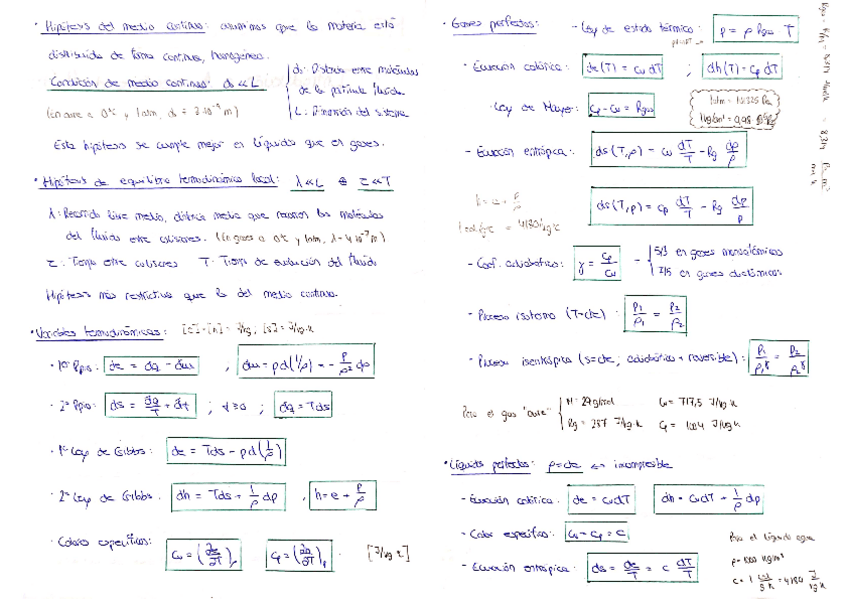 · Hipótesis del medio continuo: asumimos que la materia está
distribuida de forma continua, homogénea.
Condición de medio continuo: ds ≪ L
ds: Distancia entre moléculas
de la partícula fluida.
L: Dimensión del sistema
(en aire a 0ºC y 1 atm,
Esta hipótesis se cumple mejor en líquidos que en gases.
· Hipótesis de equilibrio termodinámico local: λ ≪ L ⊕ τ ≪ T
λ: Recorrido libre medio, distancia media que recorren las moléculas
del fluido entre colisiones. (En gases a 0ºC y 1 atm,
τ: Tiempo entre colisiones T: Tiempo de evolución del fluido
Hipótesis más restrictiva que la del medio continuo.
· Variables termodinámicas: [e] = [h] = J/kg ; [s] = J/kg·K
· 1er Ppio: de = δq - δw , δw = p d(1/ρ) = - p/ρ² dρ
· 2º Ppio: ds = δq/T +
; δq = Tds
· 1ª Ley de Gibbs: de = Tds - p d(1/ρ)
· 2ª Ley de Gibbs: dh = Tds + 1/ρ dp , h = e + p/ρ
· Calores específicos: cv = (∂e/∂T) cp = (∂h/∂T) [J/kg K]
· Gases perfectos: - Ley de estado térmico: p = ρ Rgas T
- Ecuación calórica: de(T) = cv dT ; dh(T) = cp dT
- Ley de Mayer: cp - cv = Rgas
1 atm = 101325 Pa
- Ecuación entrópica: ds(T,ρ) = cv dT/T - Rg dρ/ρ
h = e + p/ρ
ds(T,p) = cp dT/T - Rg dp/p
- Coef. adiabático: γ = cp/cv - { 5/3 en gases monoatómicos
7/5 en gases diatómicos
- Proceso isotermo (T=cte): p1/ρ1 = p2/ρ2
- Proceso isentrópico (s=cte, adiabático + reversible): p1/ρ1^γ = p2/ρ2^γ
Para el gas "aire" { M: 29 g/mol cv = 717,5 J/kg·K
Rg = 287 J/kg·K cp = 1004 J/kg·K
· Líquidos perfectos: ρ=cte ⇔ incompresible
- Ecuación calórica: de = cv dT dh = cv dT + 1/ρ dp
- Calor específico: cv = cp = c
Para el líquido agua
ρ = 1000 kg/m³
- Ecuación entrópica: ds = de/T = c dT/T
c = 1 cal/g K = 4180 J/kg K